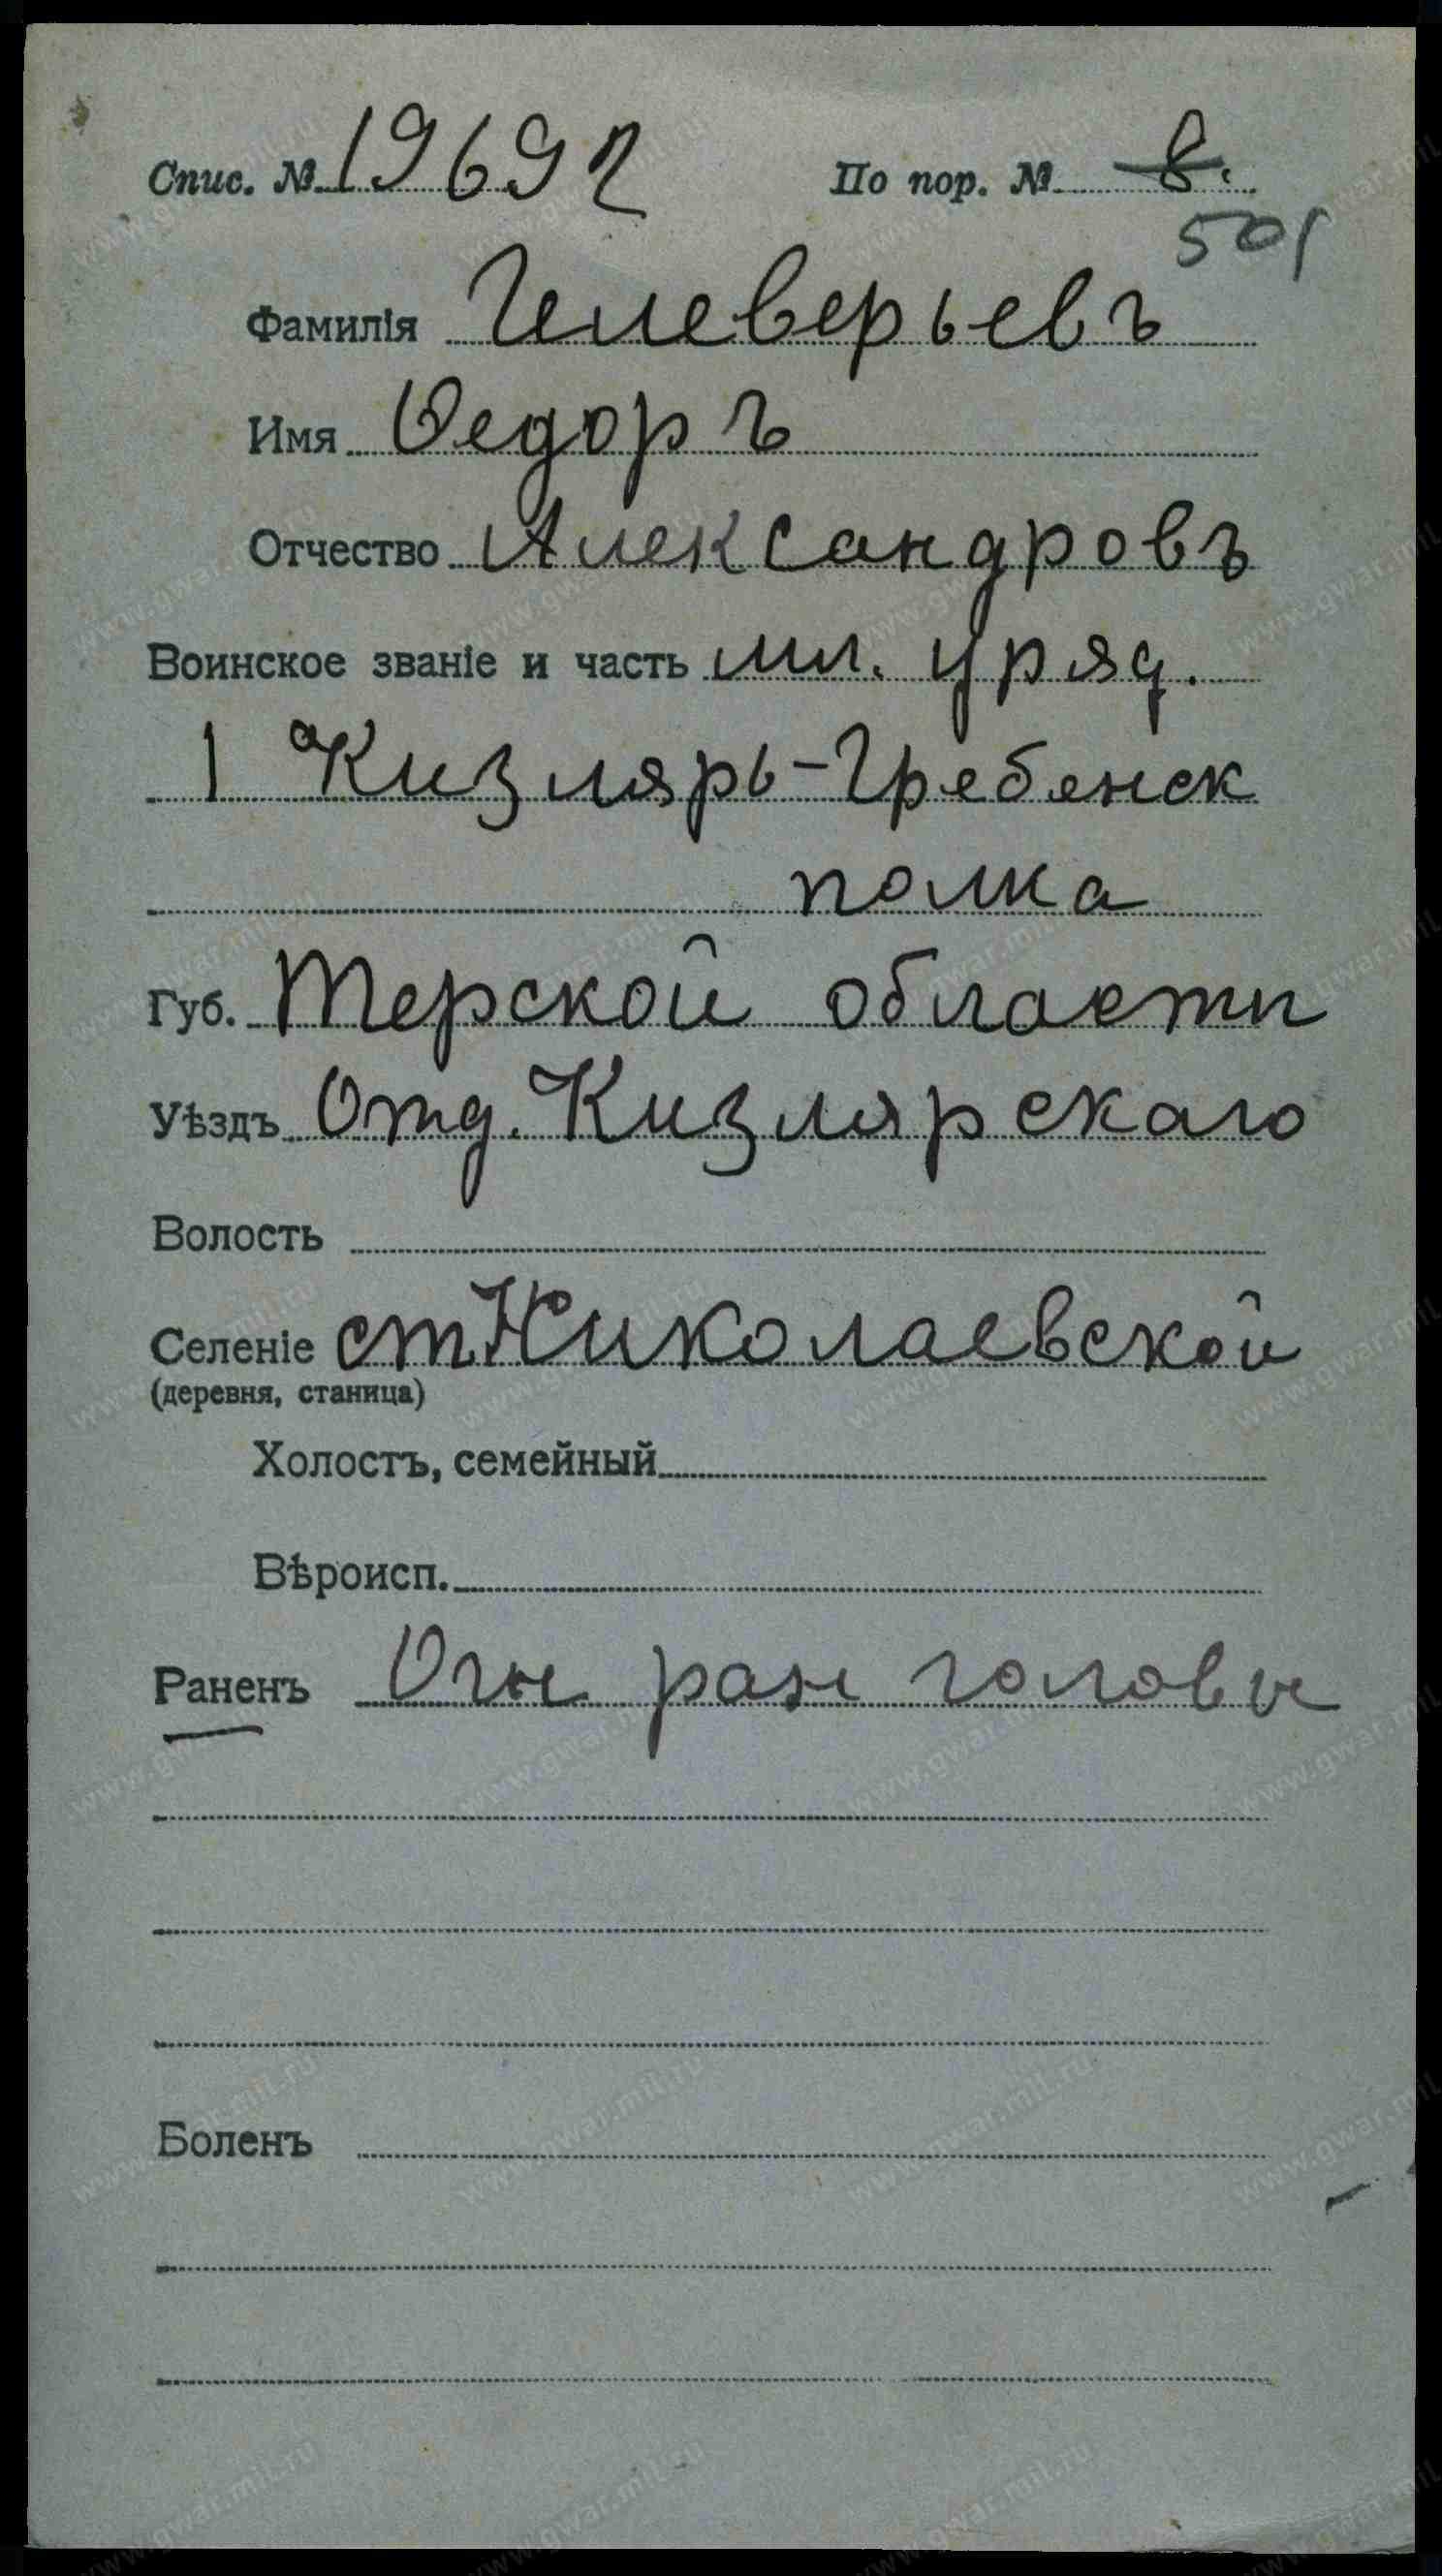 Спис. № 19692 По пор. № 8.
501
Фамилія Гилеверьевъ
Имя Ѳедоръ
Отчество Александровъ
Воинское званіе и часть мл. уряд.
1 Кизляръ-Гребенск
полка
Губ. Терской области
Уѣздъ Отд. Кизлярскаго
Волость
Селеніе ст Николаевской
(деревня, станица)
Холостъ, семейный
Вѣроисп.
Раненъ Огн ран головы
Боленъ